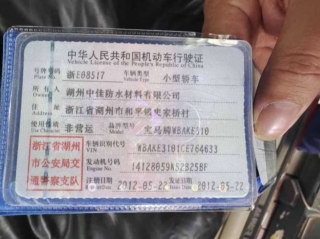 中华人民共和国机动车行驶证
Vehicle License of the People's Republic of China
号牌号码 浙E08517 车辆类型 小型轿车
所有人 湖州中佳防水材料有限公司
住址 浙江省湖州市和孚镇史家桥村
使用性质 非营运 品牌型号 宝马牌WBAAE310
浙江省湖州 车辆识别代号 WBAAE3101CE764633
市公安局交 VIN
通警察支队 发动机号码
Engine No.
注册日期 2012-05-22 发证日期 2012-05-22